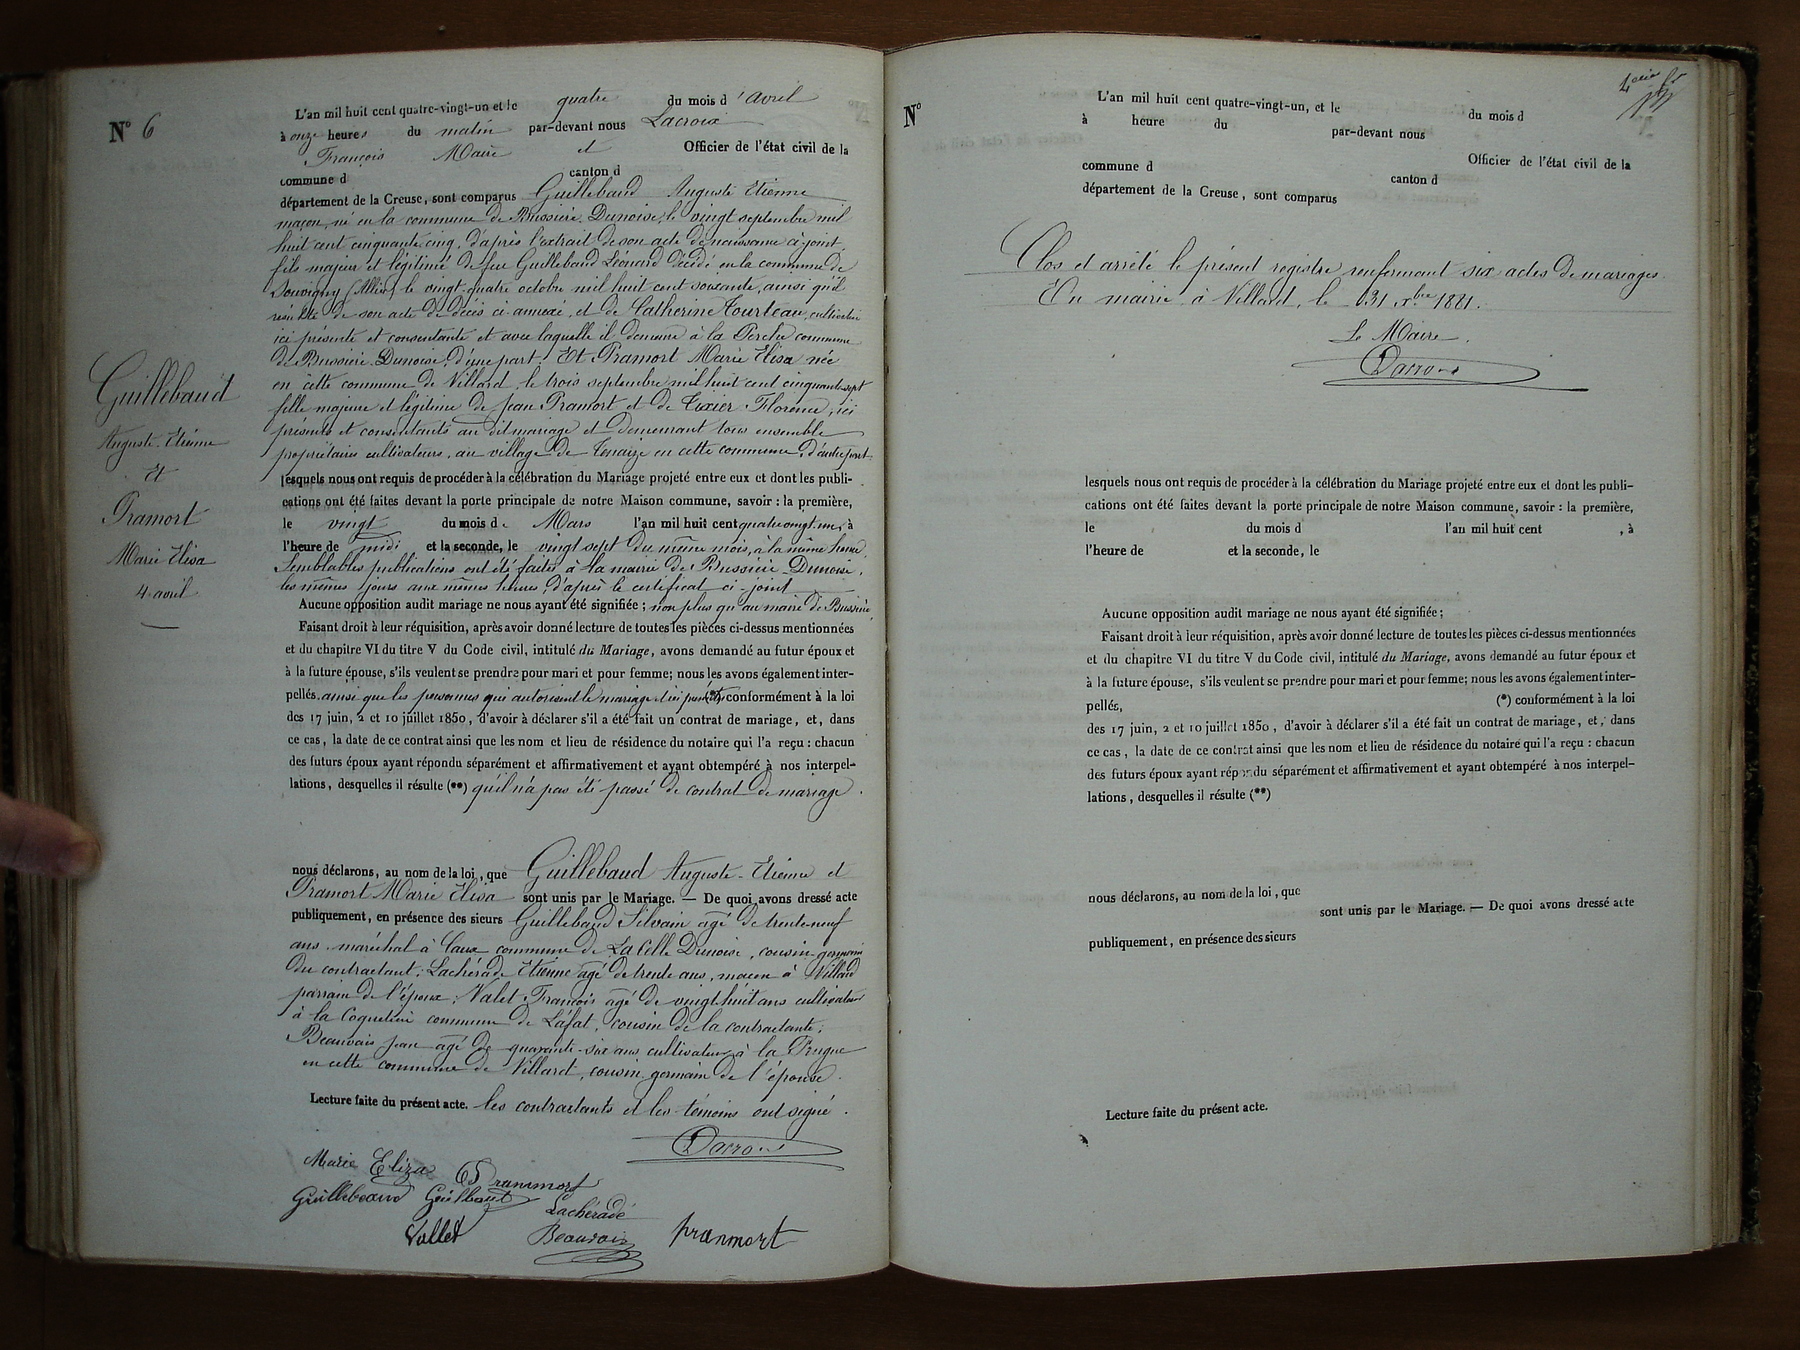 N° 6
L'an mil huit cent quatre-vingt-un et le quatre du mois d'avril
à onze heures du matin par-devant nous Lacroix
François Maire et Officier de l'état civil de la
commune d canton d
département de la Creuse, sont comparus Guillebaud Auguste Etienne
maçon, né en la commune de Bussière Dunoise, le vingt septembre mil
huit cent cinquante cinq, d'après l'extrait de son acte de naissance ci-joint,
fils majeur et légitime de feu Guillebaud Léonard décédé en la commune de
Souvigny (Allier) le vingt quatre octobre mil huit cent soixante, ainsi qu'il
résulte de son acte de décès ci-annexé, et de Catherine Tourteau, cultivatrice
ici présente et consentante et avec laquelle il demeure à la Perche commune
de Bussière Dunoise, d'une part. Et Pramort Marie Elisa née
en cette commune de Villard, le trois septembre mil huit cent cinquante-sept
fille majeure et légitime de Jean Pramort et de Tixier Florence, ici
présents et consentants au dit mariage et demeurant tous ensemble
propriétaires cultivateurs, au village de en cette commune, d'autre part
Guillebaud
Auguste Etienne
et
Pramort
Marie Elisa
4 avril
lesquels nous ont requis de procéder à la célébration du Mariage projeté entre eux et dont les publi-
cations ont été faites devant la porte principale de notre Maison commune, savoir : la première,
le vingt du mois de Mars l'an mil huit cent quatre vingt un, à
l'heure de midi et la seconde, le vingt sept du même mois, à la même heure.
Semblables publications ont été faites à la mairie de Bussière Dunoise,
les mêmes jours aux mêmes heures, d'après le certificat ci-joint
Aucune opposition audit mariage ne nous ayant été signifiée ; non plus qu'au maire de Bussière
Faisant droit à leur réquisition, après avoir donné lecture de toutes les pièces ci-dessus mentionnées
et du chapitre VI du titre V du Code civil, intitulé du Mariage, avons demandé au futur époux et
à la future épouse, s'ils veulent se prendre pour mari et pour femme; nous les avons également inter-
pellés, ainsi que les personnes qui autorisent le mariage ici présentes, (*) conformément à la loi
des 17 juin, 2 et 10 juillet 1850, d'avoir à déclarer s'il a été fait un contrat de mariage, et, dans
ce cas, la date de ce contrat ainsi que les nom et lieu de résidence du notaire qui l'a reçu : chacun
des futurs époux ayant répondu séparément et affirmativement et ayant obtempéré à nos interpel-
lations, desquelles il résulte (**) qu'il n'a pas été passé de contrat de mariage.
nous déclarons, au nom de la loi, que Guillebaud Auguste-Etienne et
Pramort Marie Elisa sont unis par le Mariage. — De quoi avons dressé acte
publiquement, en présence des sieurs Guillebaud Silvain agé de trente-neuf
ans maréchal à commune de La Celle Dunoise, cousin germain
du contractant; Lachérade Etienne agé de trente ans, maçon à Villard
parrain de l'époux; Valet François agé de vingt huit ans cultivateur
à la commune de Lafat, cousin de la contractante;
Beauvais Jean agé de quarante-six ans cultivateur à la Prugne
en cette commune de Villard, cousin germain de l'épouse.
Lecture faite du présent acte. les contractants et les témoins ont signé.
Lacroix
Marie Eliza Pranmort
Guillebeaud Guillbaut
Lachérade
Vallet Beauvais pranmort
N°
L'an mil huit cent quatre-vingt-un, et le du mois d
à heure du par-devant nous
Officier de l'état civil de la
commune d canton d
département de la Creuse, sont comparus
Clos et arrêté le présent registre renfermant six actes de mariages.
En mairie à Villard, le 31 Xbre 1881.
Le Maire,
Lacroix
lesquels nous ont requis de procéder à la célébration du Mariage projeté entre eux et dont les publi-
cations ont été faites devant la porte principale de notre Maison commune, savoir : la première,
le du mois d l'an mil huit cent , à
l'heure de et la seconde, le
Aucune opposition audit mariage ne nous ayant été signifiée ;
Faisant droit à leur réquisition, après avoir donné lecture de toutes les pièces ci-dessus mentionnées
et du chapitre VI du titre V du Code civil, intitulé du Mariage, avons demandé au futur époux et
à la future épouse, s'ils veulent se prendre pour mari et pour femme; nous les avons également inter-
pellés, (*) conformément à la loi
des 17 juin, 2 et 10 juillet 1850, d'avoir à déclarer s'il a été fait un contrat de mariage, et, dans
ce cas, la date de ce contrat ainsi que les nom et lieu de résidence du notaire qui l'a reçu : chacun
des futurs époux ayant répondu séparément et affirmativement et ayant obtempéré à nos interpel-
lations, desquelles il résulte (**)
nous déclarons, au nom de la loi, que
sont unis par le Mariage. — De quoi avons dressé acte
publiquement, en présence des sieurs
Lecture faite du présent acte.